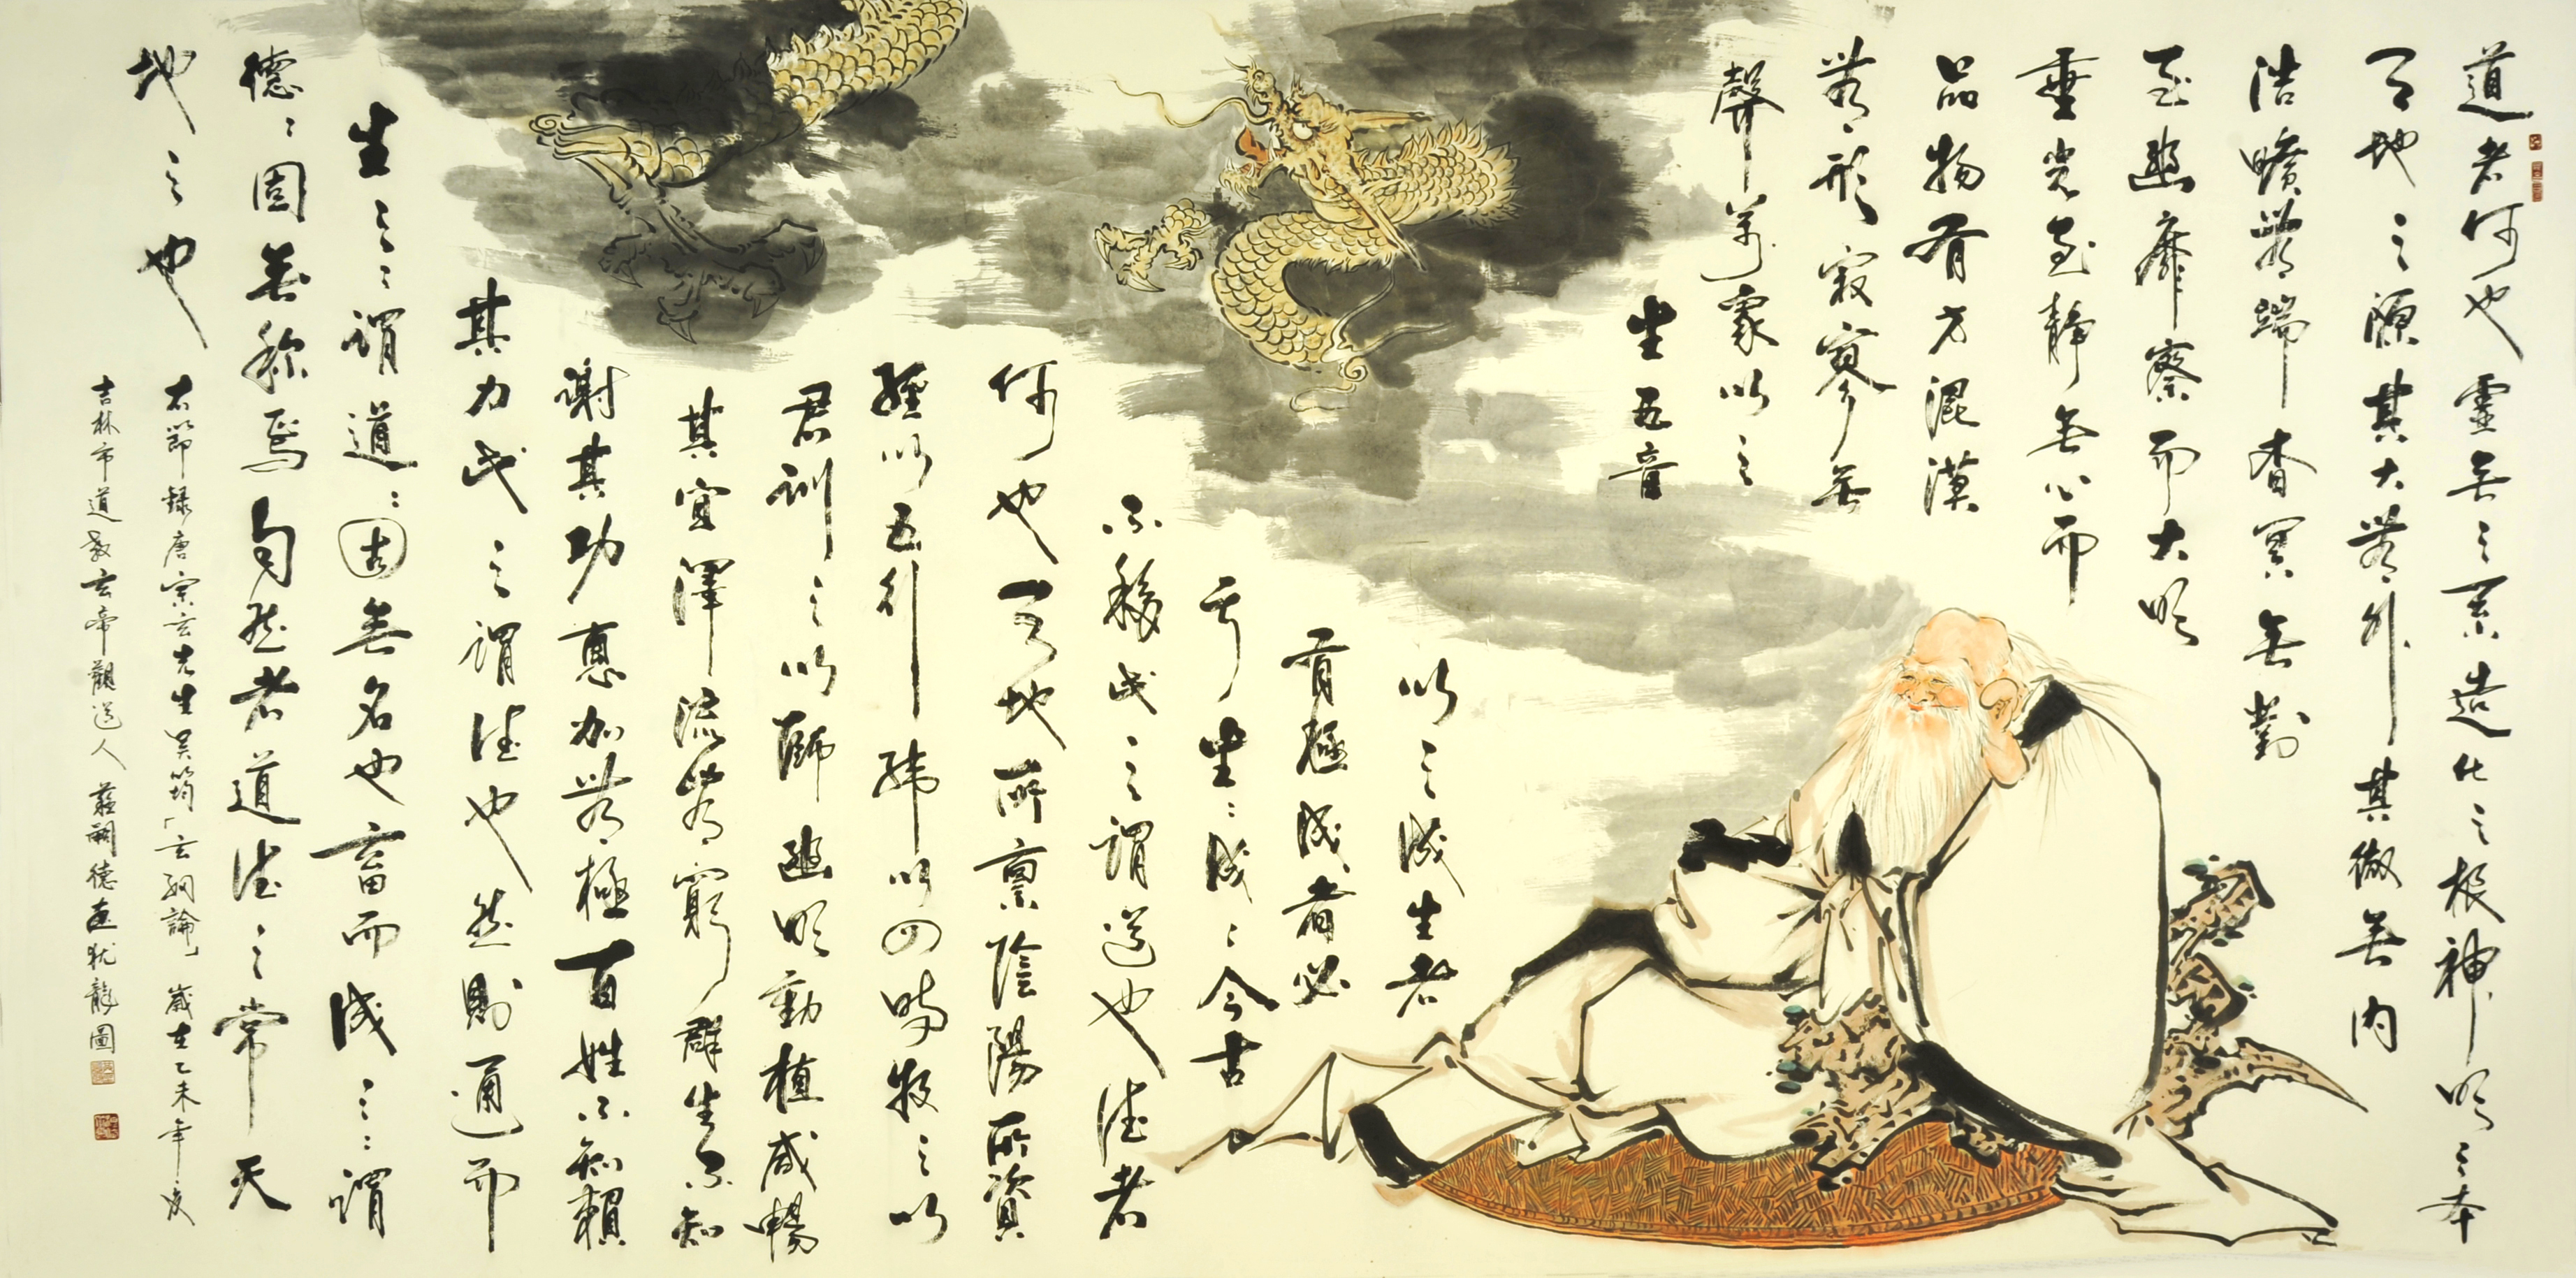 道者何也虛無之系造化之根神明之本
天地之源其大無外其微無內
浩曠無端杳冥無對
至幽靡察而大明
垂光至靜無心而
品物有方混漠
無形寂寥無
聲萬象以之
生五音
以之成生者
有極成者必
亏生〻成〻今古
不移此之謂道也德者
何也天地所稟陰陽所資
經以五行緯以四時牧之以
君訓之以師幽明動植咸暢
其宜澤流無窮群生不知
謝其功惠加無極百姓不知賴
其力此之謂德也然則通而
生之〻謂道〻固無名也畜而成之〻謂
德〻固無稱焉自然者道德之常天
地之也
右節録唐宗玄先生吳筠「玄綱論」歲在乙未年夏
吉林市道教玄帝觀道人莊嗣德画犹龍圖